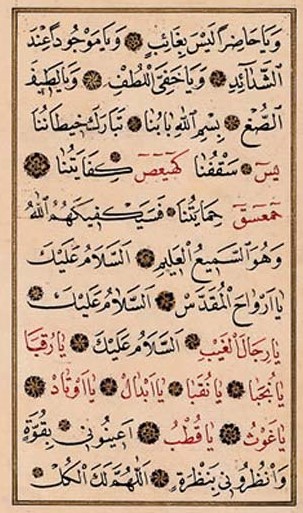 وَيَا حَاضِرًا لَيْسَ بِغَائِبٍ وَيَا مَوْجُودًا عِنْدَ
الشَّدَائِدِ وَيَا خَفِيَّ اللُّطْفِ وَيَا لَطِيفَ
الصُّنْعِ بِسْمِ اللهِ بَابُنَا تَبَارَكَ حِيطَانُنَا
يس سَقْفُنَا كهيعص كِفَايَتُنَا
حمعسق حِمَايَتُنَا فَسَيَكْفِيكَهُمُ اللهُ
وَهُوَ السَّمِيعُ الْعَلِيمُ السَّلَامُ عَلَيْكَ
يَا أَرْوَاحَ الْمُقَدَّسِ السَّلَامُ عَلَيْكَ
يَا رِجَالَ الْغَيْبِ السَّلَامُ عَلَيْكَ يَا رُقَبَا
يَا نُجَبَا يَا نُقَبَا يَا أَبْدَالُ يَا أَوْتَادُ
يَا غَوْثُ يَا قُطْبُ أَعِينُونِي بِقُوَّةٍ
وَانْظُرُونِي بِنَظْرَةٍ اللَّهُمَّ لَكَ الْكُلُّ